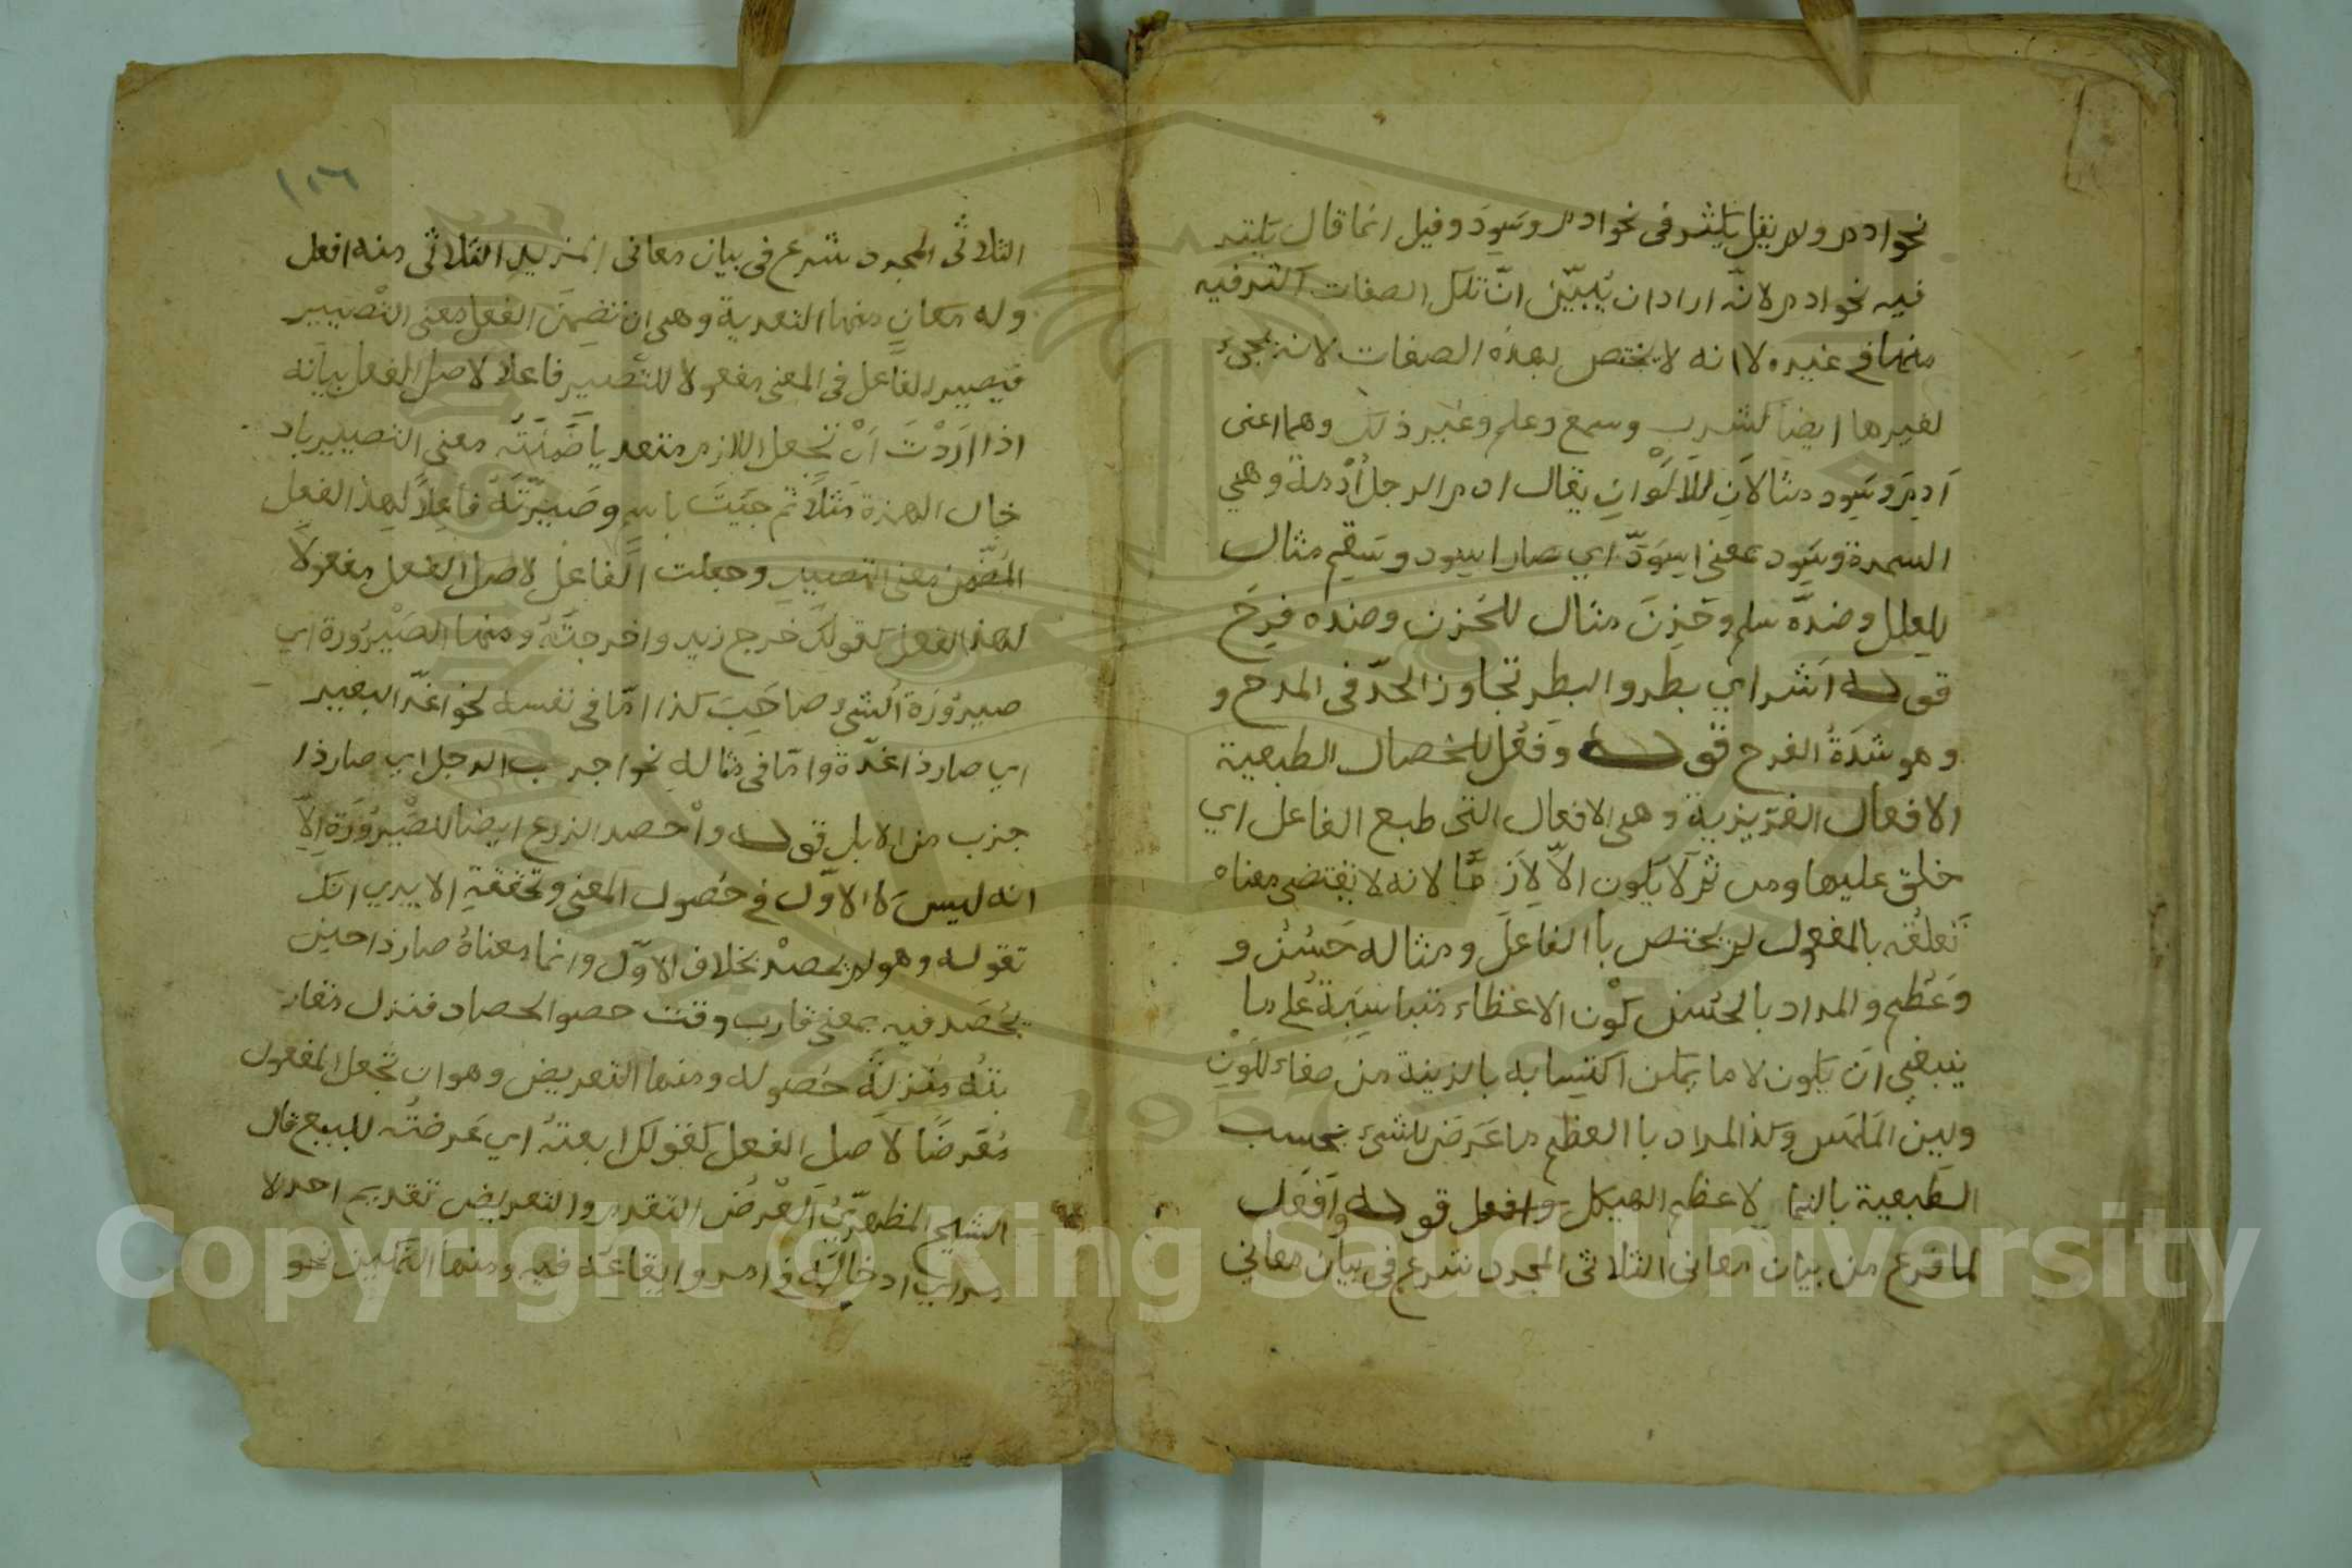 نحو ادم ولم يقل يكثر في نحو ادم وسود وقيل انما قال يكثر
فيه نحو ادم لانه اراد ان يبين ان تلك الصفات اكثر فيه
منها في غيره لا انه لا يختص بهذه الصفات لانه يجيء
لغيرها ايضا كشرب وسمع وعلم وغير ذلك وهما اعنى
اَدِمَ وسَوِد مثالان للالوان يقال ادم الرجل اُدْمة وهي
السمرة وسَوِد بمعنى اسوَدّ اي صار اسود وسَقِم مثال
للعلل وضدّه سلم وحَزِنَ مثال للحَزن وضده فرِحَ
قوله اشر اي بطر والبطر تجاوز الحدّ في المرح و
وهو شدّةُ الفرح قوله وفَعُل للخصال الطبعية
الافعال الغريزية وهي الافعال التى طبع الفاعل اي
خلق عليها ومن ثم لا يكون الاّ لازما لانه لا يقتضى معناه
تعلقه بالمفعول بل يختص با الفاعل ومثاله حَسُن و
وعَظُم والمراد بالحُسْن كَوْن الاعظاء متناسبةً على ما
ينبغي ان يكون لا ما يمكن اكتسابه بالزينة من صفاء للون
ولين الملمس وكذا المراد با العظم ما عَرَض للشيء بحسب
الطبعية بالنما لا عظم الهيكل وافعل قوله وافعَل
لما فرع من بيان معاني الثلاثى المجرد شرع في بيان معاني
١٠٦
الثلاثى المجرد شرع في بيان معاني المزيد الثلاثى منه افعل
وله معانٍ منها التعدية وهي ان تضمن الفعل معنى التصيير
فيصير الفاعل في المعنى مفعولا للتصيير فاعلا لاصل الفعل بيانه
اذا اَرَدْتَ اَنْ تجعل اللازم متعديا ضَمَّنْتَه معنى التصيير باد
خال الهمزة مثلا ثم جئتَ باسم وصَيَّرْتَهُ فاعلاً لهذا الفعل
المُضَمّن معنى التصيير وجعلت الفاعل لاصل الفعل مفعولاً
لهذا الفعل كقولك خرج زيد واخرجتُهُ ومنها الصَيْرُورة اي
صيرُورَة الشيء صاحِبَ كذا امّا في نفسه نحو اغدّ البعير
اي صار ذا غدّة وامّا في مثاله نحو اجرب الرجل اي صار ذا
جزب من الابل قوله واحصد الزرع ايضا للصّيرُورَة الاّ
انه ليس كالاوّل في حصول المعنى وتحققه الا يري انك
تقوله وهو لم يحصد بخلاف الاوّل وانما معناهُ صار ذا حين
يُحْصَد فيه بمعنى قارب وقت حصو الحصاد فنزل مقار
بتُه منزلة حصوله ومنها التعريض وهو ان تجعل المفعول
مُعَرضًا لاصل الفعل كقولك ابعتهُ اي عَرضتُه للبيع قال
الشيخ المظهرّي العَرْض التقدم والتعريض تقديم احد لا
مر اي ادخاله في امر وايقاعه فيه ومنها التمكين نحو
Copyright © King Saud University
1957